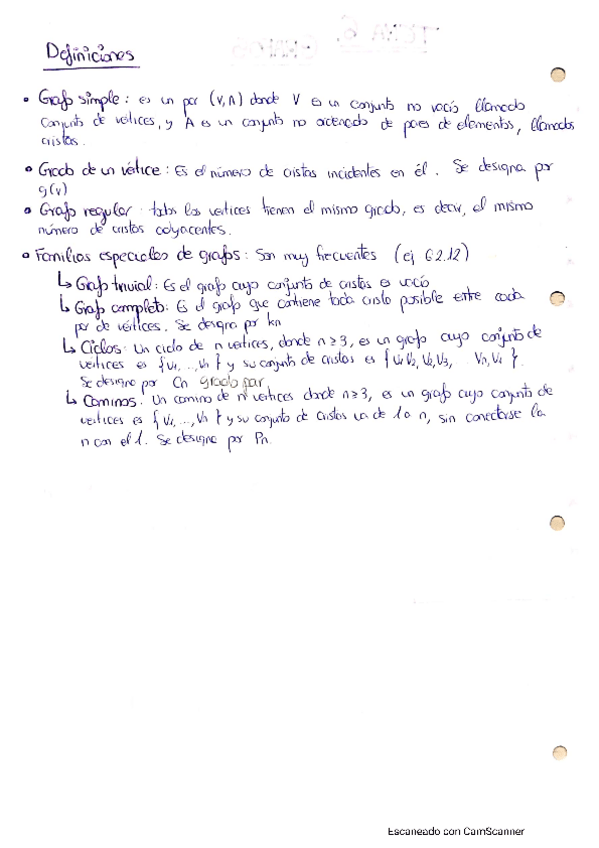 Definiciones
• Grafo simple: es un par (V,A) donde V es un conjunto no vacío llamado
conjunto de vértices, y A es un conjunto no ordenado de pares de elementos, llamados
aristas.
• Grado de un vértice: Es el número de aristas incidentes en él. Se designa por
g(v)
• Grafo regular: todos los vertices tienen el mismo grado, es decir, el mismo
número de aristas adyacentes.
• Familias especiales de grafos: Son muy frecuentes (ej 6.2.12)
↳ Grafo trivial: Es el grafo cuyo conjunto de aristas es vacío
↳ Grafo completo: Es el grafo que contiene toda arista posible entre cada
par de vértices. Se designa por kn
↳ Ciclos: Un ciclo de n vertices, donde n≥3, es un grafo cuyo conjunto de
vértices es {V1,...,Vn} y su conjunto de aristas es {V1V2, V2V3, VnV1}.
Se designa por Cn grado par
↳ Caminos: Un camino de n vertices donde n≥3, es un grafo cuyo conjunto de
vertices es {V1,...,Vn} y su conjunto de aristas va de 1 a n, sin conectarse la
n con el 1. Se designa por Pn.
Escaneado con CamScanner